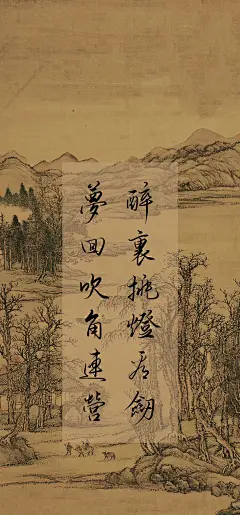 醉裏挑燈看劍
夢回吹角連營